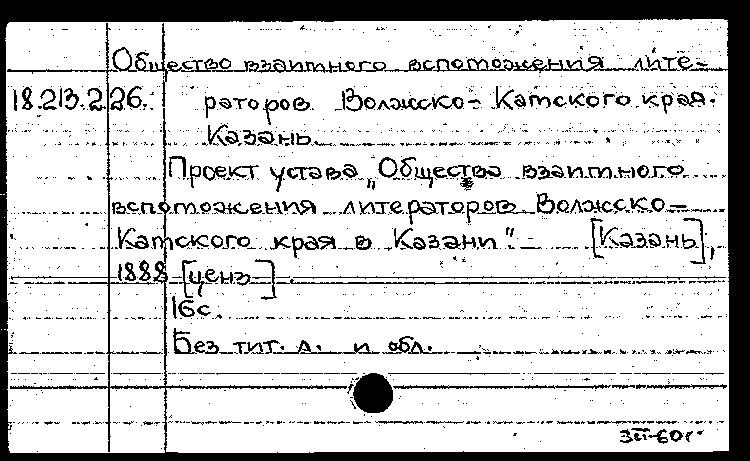 Общество взаимного вспоможения лите-
18.213.2.26. раторов Волжско-Камского края.
Казань.
Проект устава „Общества взаимного
вспоможения литераторов Волжско-
Камского края в Казани". [Казань],
1888 [ценз] .
16с.
Без тит. л. и обл.